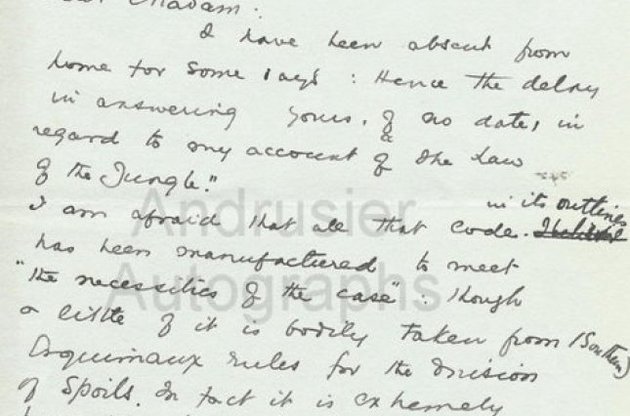 Madam:
I have been absent from
home for some days: Hence the delay
in answering yours, of no date, in
regard to my account of the Law
of the Jungle."
in its outlines
I am afraid that all that code.
has been manufactured to meet
"the necessities of the case": though
a little of it is bodily taken from (Southern)
Esquimaux rules for the division
of Spoils. In fact it is extremely
Andrusier
Autographs